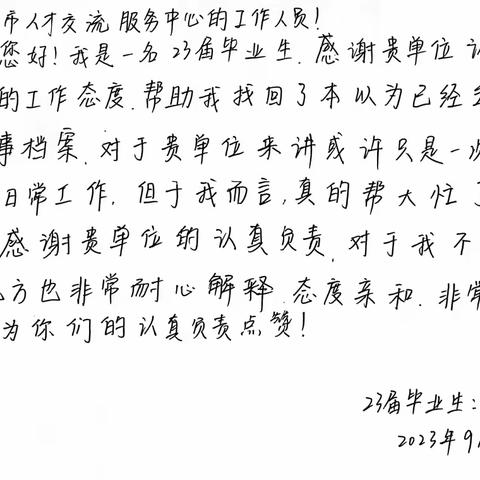 市人才交流服务中心的工作人员!
您好!我是一名23届毕业生.感谢贵单位认
的工作态度.帮助我找回了本以为已经
事档案.对于贵单位来讲或许只是一次
日常工作.但于我而言,真的帮大忙了
感谢贵单位的认真负责.对于我不
方也非常耐心解释.态度亲和.非常
为你们的认真负责点赞!
23届毕业生:
2023年9